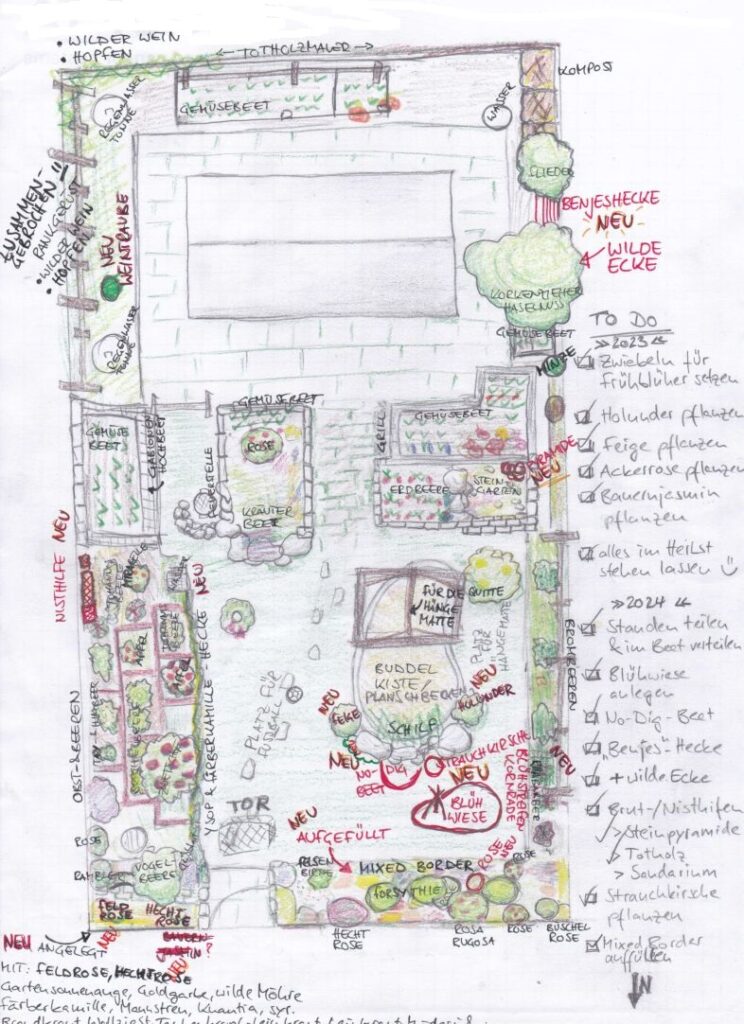 • WILDER WEIN
• HOPFEN
← TOTHOLZMAUER →
KOMPOST
GEMÜSEBEET
REGENWASSER
TONNE
WASSER
FLIEDER
ZUSAMMEN-
GEBROCHEN !!
RANKGERÜST
• WILDER WEIN
• HOPFEN
NEU
WEINTRAUBE
BENJESHECKE
NEU
WILDE
ECKE
KORKENZIEHER
HASELNUSS
REGENWASSER
TONNE
GEMÜSEBEET
MINZE
GEMÜSE
BEET
GABIONEN
HOCHBEET
GEMÜSEBEET
ROSE
FEUERSTELLE
KRÄUTER
BEET
GRILL
GEMÜSEBEET
ERDBEERE
STEIN-
GARTEN
KRAMDE
NEU
NISTHILFE NEU
NEU
FÜR DIE
HÄNGE
MATTE
QUITTE
PLATZ FÜR
HÄNGEMATTE
BROMBEEREN
APFEL
APFEL
OBST & BEEREN
YSOP & FÄRBERKAMILLE-HECKE
BUDDEL
KISTE/
PLANSCHBECKEN
SCHILF
NEU
FEIGE
NEU
HOLUNDER
PLATZ FÜR
FUSSBALL
NEU
NO-DIG
BEET
STRAUCHKIRSCHE
NEU
BLÜH
WIESE
BLÜHSTREIFEN
KORNRADE
NEU
TOR
NEU
AUFGEFÜLLT
ROSE
RAMBLER
VOGEL-
BEERE
FELSEN
BIRNE
MIXED BORDER
FORSYTHIE
ROSE
NEU
ROSE
FELD
ROSE
HECHT
ROSE
BAUERN
JASMIN?
NEU
NEU
HECHT
ROSE
ROSA
RUGOSA
ROSE
BUSCHEL
ROSE
NEU ANGELEGT
MIT: FELDROSE, HECHTROSE
Gartensonnenauge, Goldgarbe, wilde Möhre
Färberkamille, Mannstreu, Knautia, syr.
TO DO
» 2023 «
Zwiebeln für
Frühblüher setzen
Holunder pflanzen
Feige pflanzen
Ackerrose pflanzen
Bauernjasmin
pflanzen
alles im Herbst
stehen lassen
» 2024 «
Stauden teilen
& im Beet verteilen
Blühwiese
anlegen
No-Dig-Beet
"Benjes"-Hecke
+ wilde Ecke
Brut-/Nisthilfen
> Steinpyramide
> Totholz
> Sandarium
Strauchkirsche
pflanzen
Mixed Border
auffüllen
N